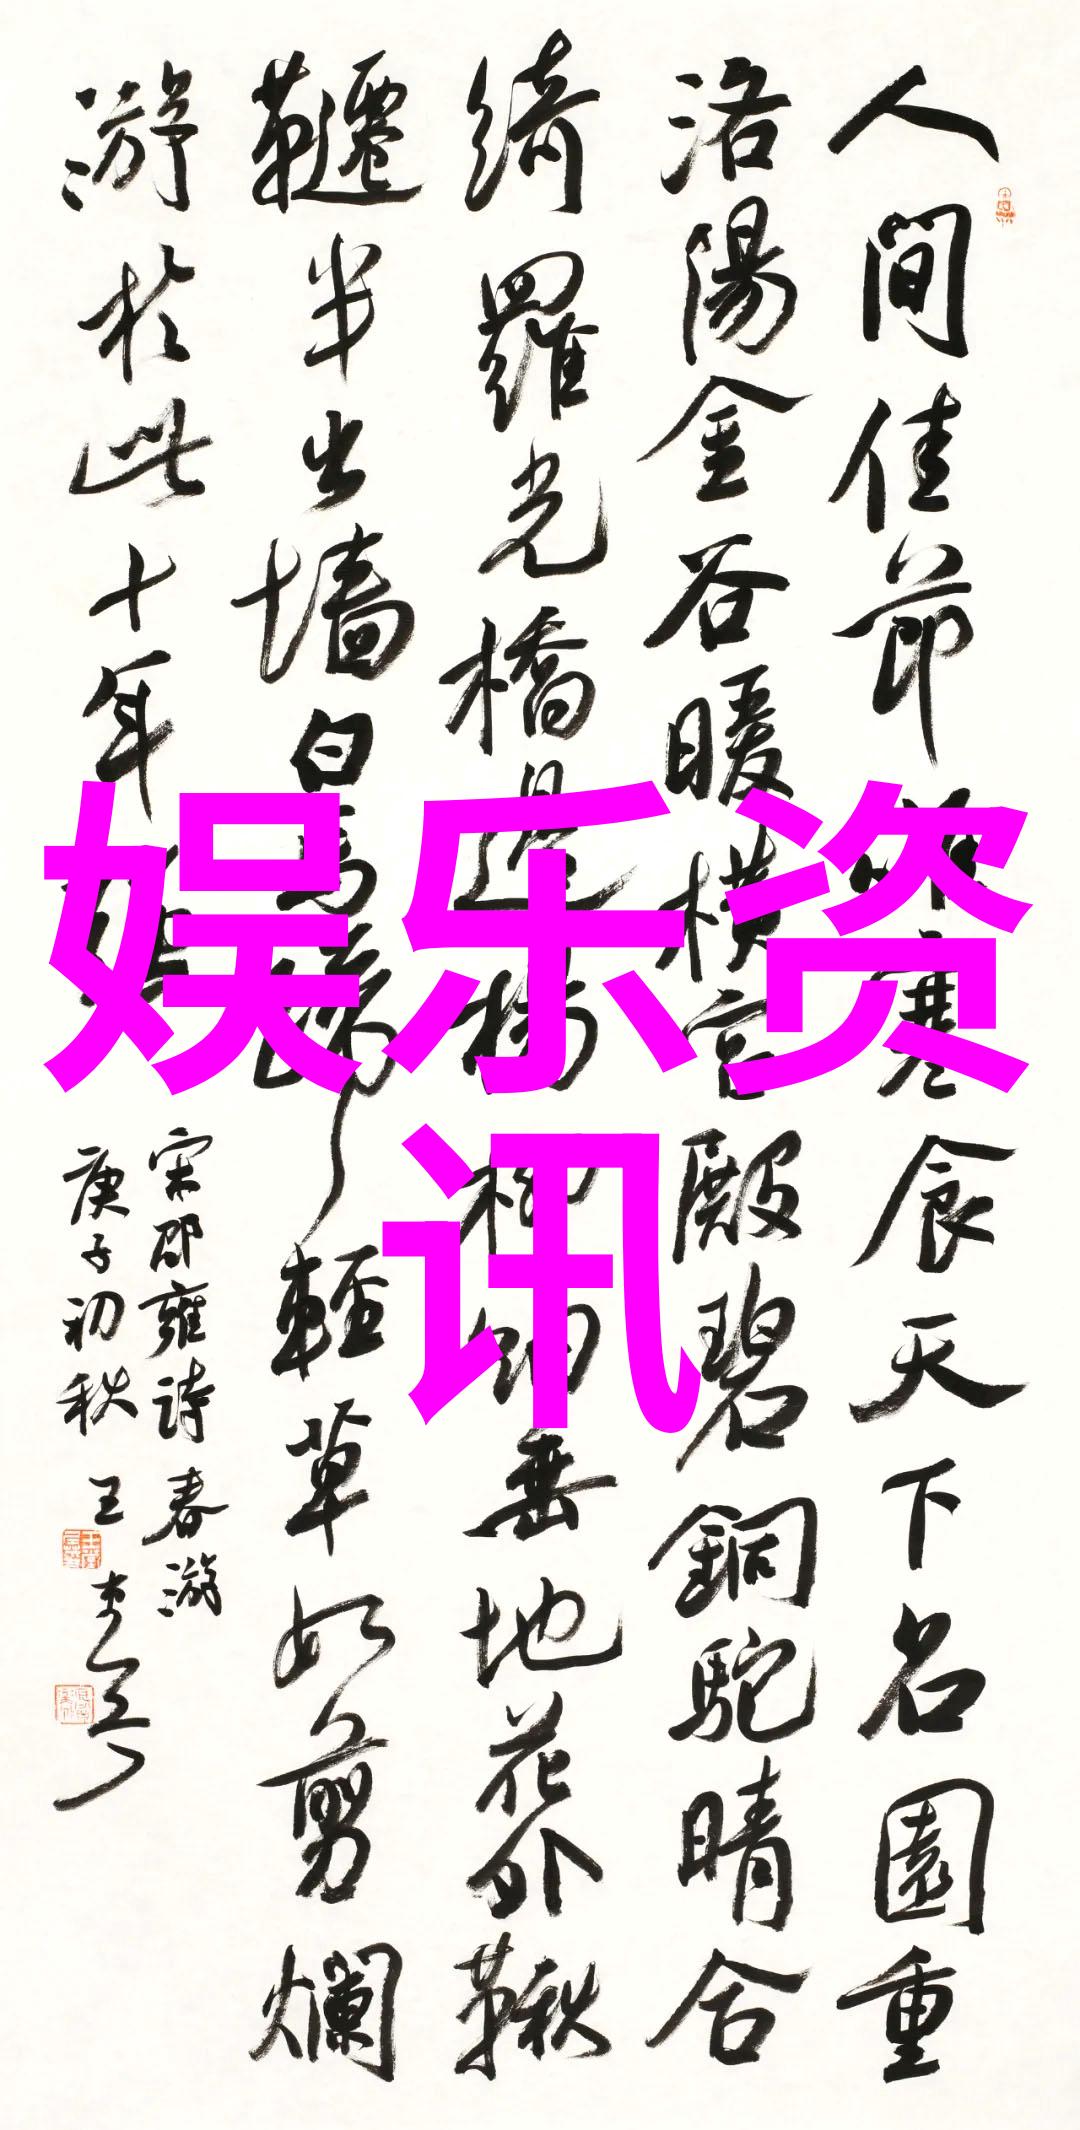 人間佳節唯寒食天下名園重
洛陽金谷暖橫宮殿碧銅駝晴合
綺羅光橋邊楊柳細垂地花外鞦
韆半出墻白馬蹄輕草如剪爛
游於此十年
宋邵雍詩春游
庚子初秋王
娱乐资
讯